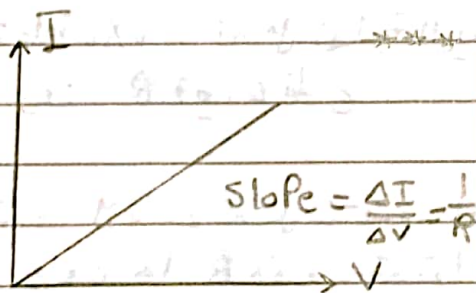 I
***
Slope = ΔI/ΔV = 1/R
V